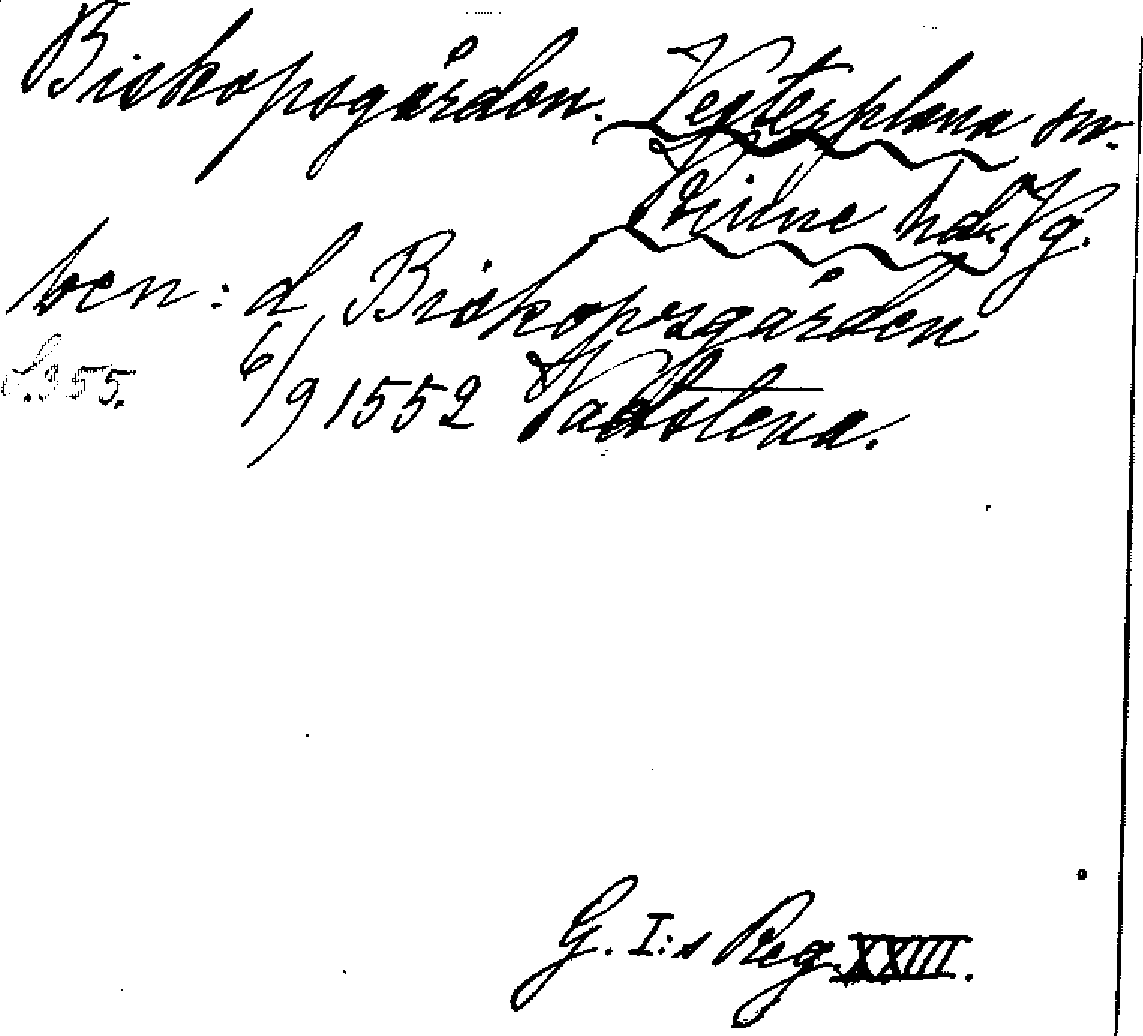 Biskopsgården. Vesterplana sn.
Kinne hd. Vg.
ben: d Biskopsgården
S. 355. 6/9 1552 Vadstena.
G. I:s Reg. XXIII.